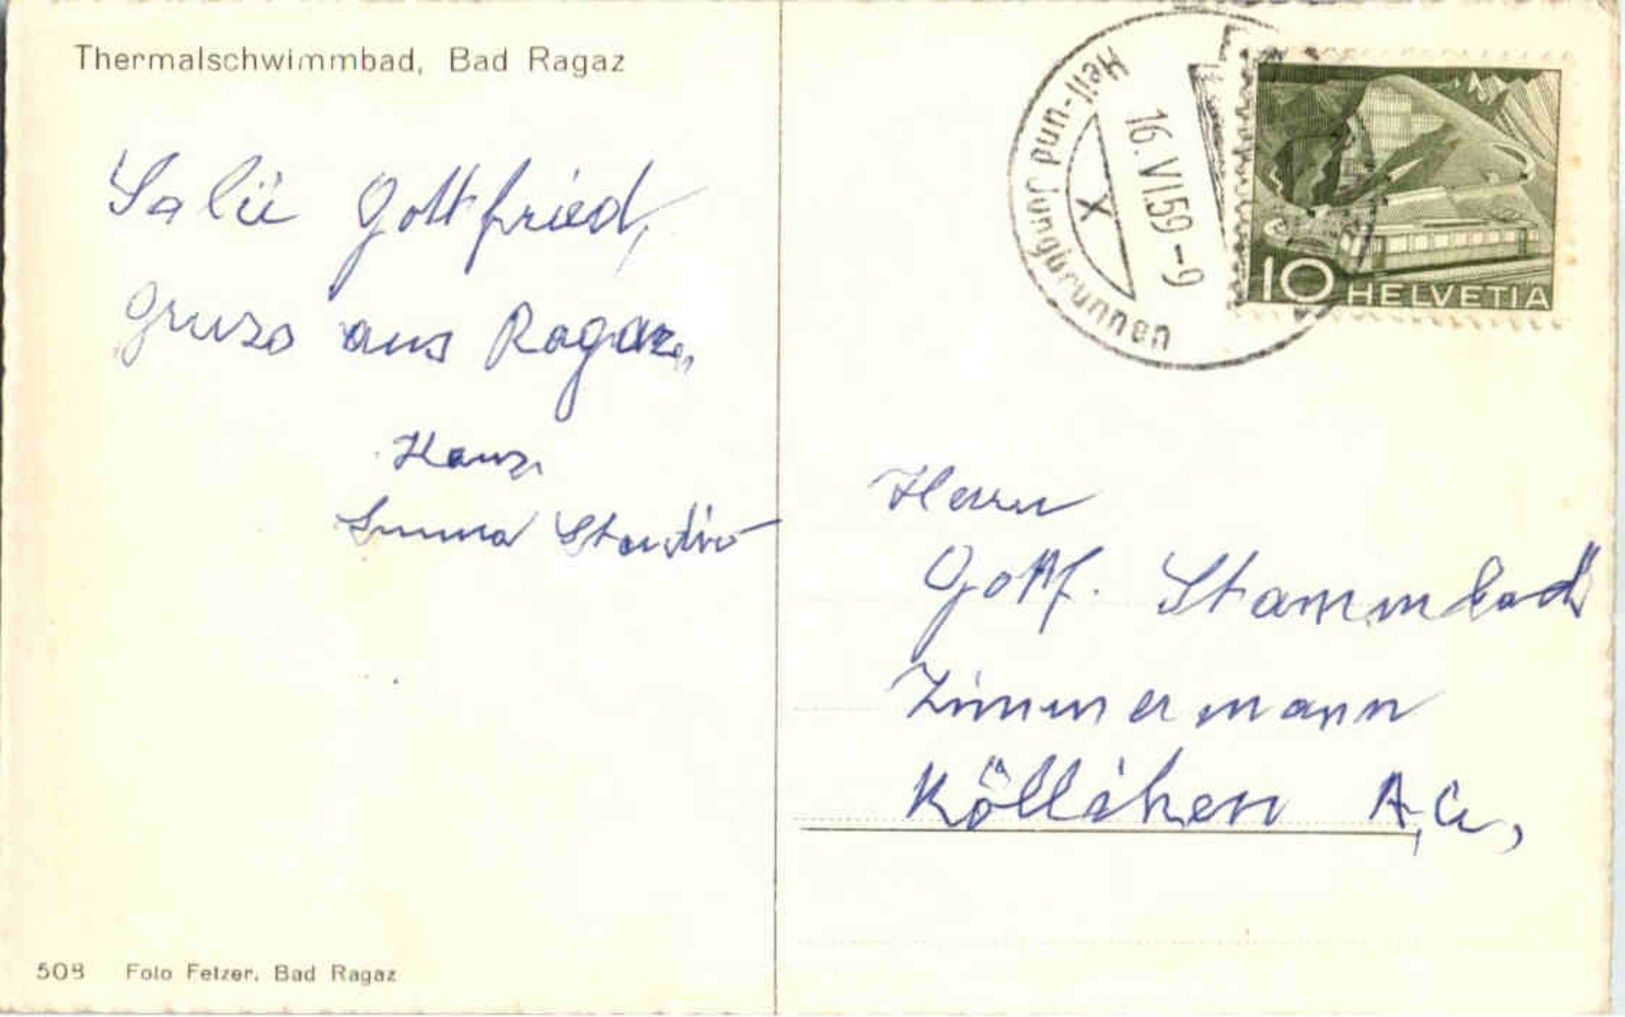 Thermalschwimmbad, Bad Ragaz
Salü Gottfried,
Gruss aus Ragaz,
Hans
Emma
508 Foto Fetzer, Bad Ragaz
Heil- und Jungbrunnen
16.VI.59-9
X
10 HELVETIA
Herrn
Gottf. Stammbach
Zimmermann
Kölliken A.G,